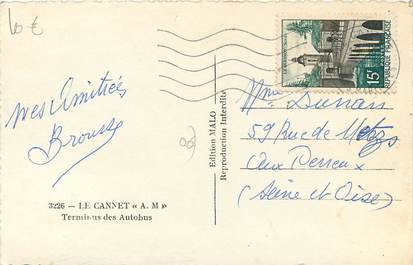 10 €
mes Amitiés
Brousse
3226 - LE CANNET « A. M »
Terminus des Autobus
Edition MALO
Reproduction Interdite
15F
REPUBLIQUE FRANÇAISE
POSTES
59 Rue de Metz
aux Perreux
(Seine et Oise)